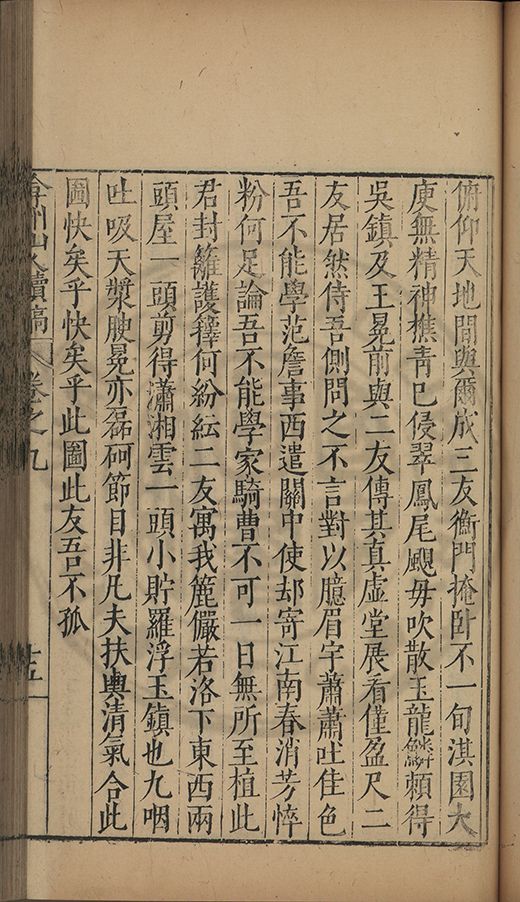 俯仰天地間與爾成三友衡門掩卧不一旬淇園大
庾無精神樵青已侵翠鳳尾颸毋吹散玉龍鱗頼得
吳鎮及王冕前與二友傳其真虛堂展看僅盈尺二
友居然侍吾側問之不言對以臆眉宇蕭蕭吐佳色
吾不能學范詹事西遣關中使却寄江南春消芳悴
粉何足論吾不能學家騎曹不可一日無所至植此
君封籬護籜何紛紜二友寓我簏儼若洛下東西兩
頭屋一頭剪得瀟湘雲一頭小貯羅浮玉鎮也九咽
吐吸天漿腴冕亦磊砢節目非凡夫扶輿清氣合此
圖快矣乎快矣乎此圖此友吾不孤
弇州山人續稿 卷之九 十五